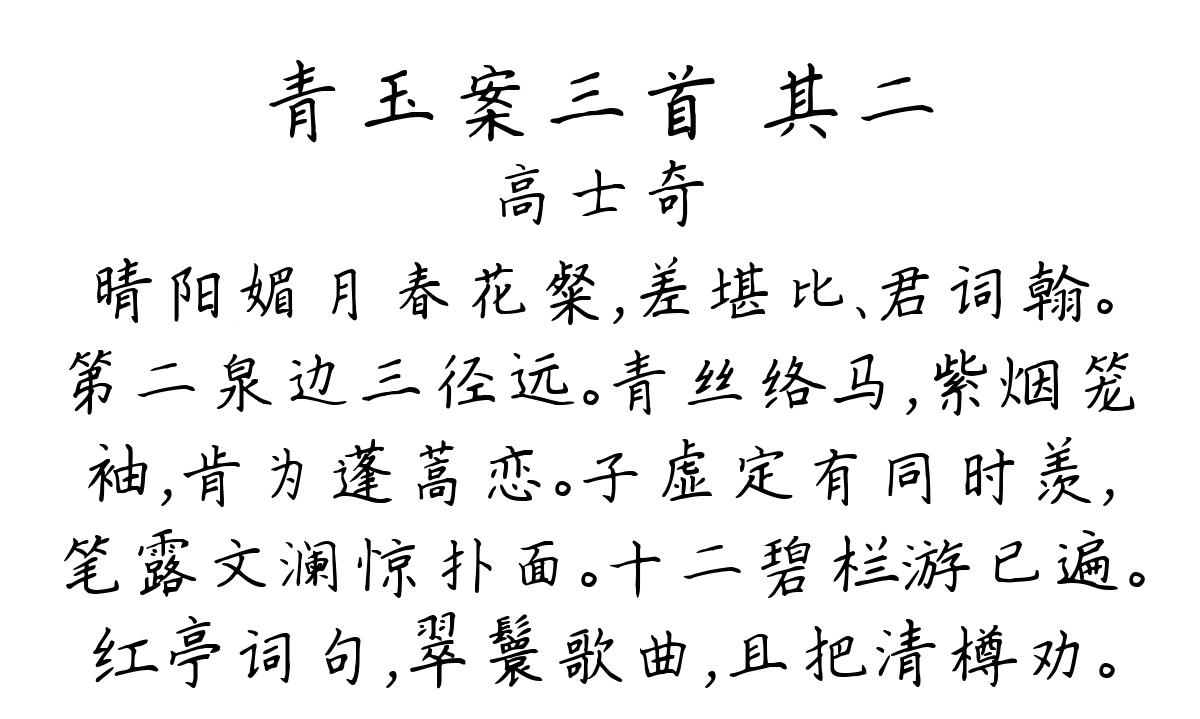 青玉案三首 其二
高士奇
晴阳媚月春花粲,差堪比、君词翰。
第二泉边三径远。青丝络马,紫烟笼
袖,肯为蓬蒿恋。子虚定有同时羡,
笔露文澜惊扑面。十二碧栏游已遍。
红亭词句,翠鬟歌曲,且把清樽劝。